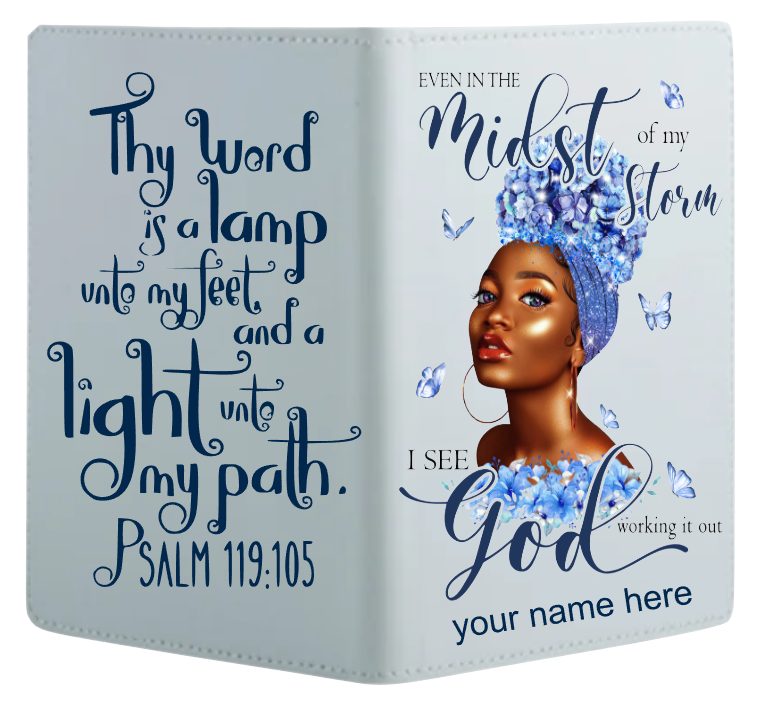 Thy Word
is a lamp
unto my feet,
and a
light unto
my path.
PSALM 119:105
EVEN IN THE
Midst of my
Storm
I SEE
God working it out
your name here